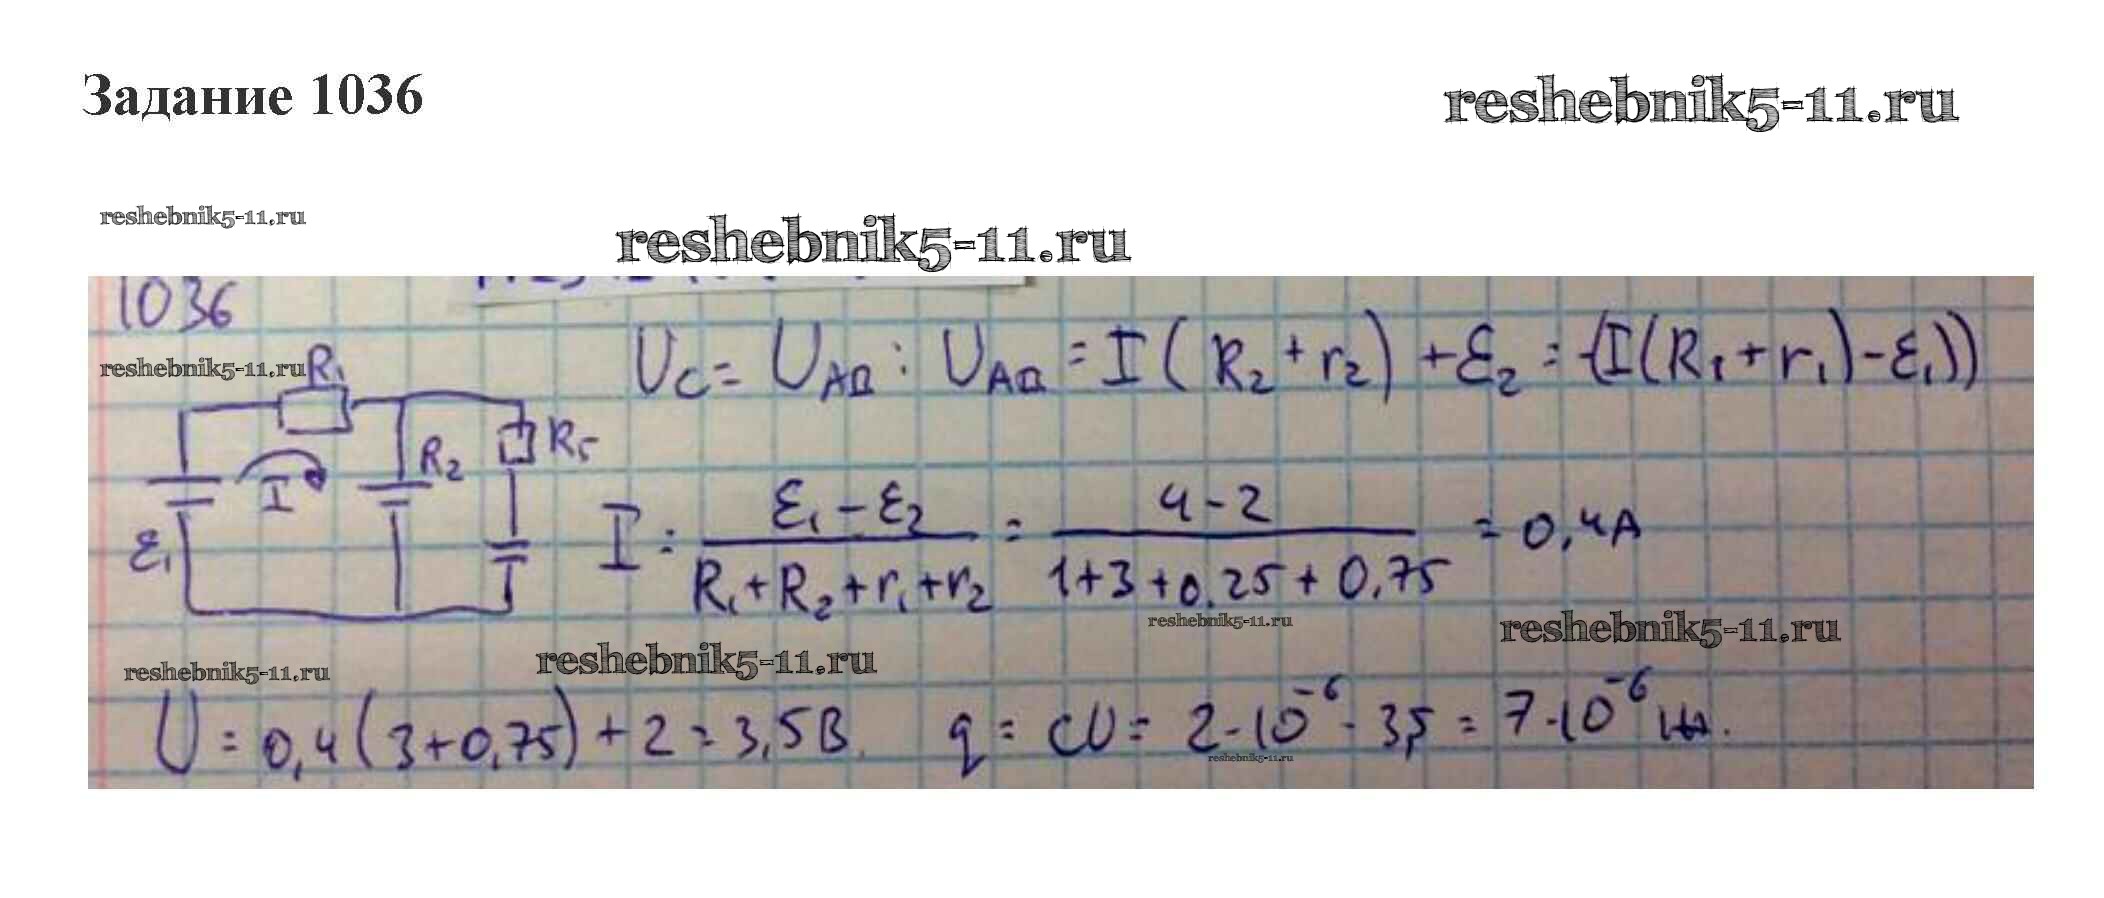 Задание 1036
reshebnik5-11.ru
reshebnik5-11.ru
reshebnik5-11.ru
1036
reshebnik5-11.ru
R₁
U_C = U_AD : U_AD = I(R₂ + r₂) + ℰ₂ = -(I(R₁ + r₁) - ℰ₁))
R₂
R₅
I
ℰ₁
I = (ℰ₁ - ℰ₂)/(R₁ + R₂ + r₁ + r₂) = (4 - 2)/(1 + 3 + 0,25 + 0,75) = 0,4А
reshebnik5-11.ru
reshebnik5-11.ru
reshebnik5-11.ru
reshebnik5-11.ru
U = 0,4(3 + 0,75) + 2 = 3,5 В. q = cU = 2·10⁻⁶ · 3,5 = 7·10⁻⁶
reshebnik5-11.ru